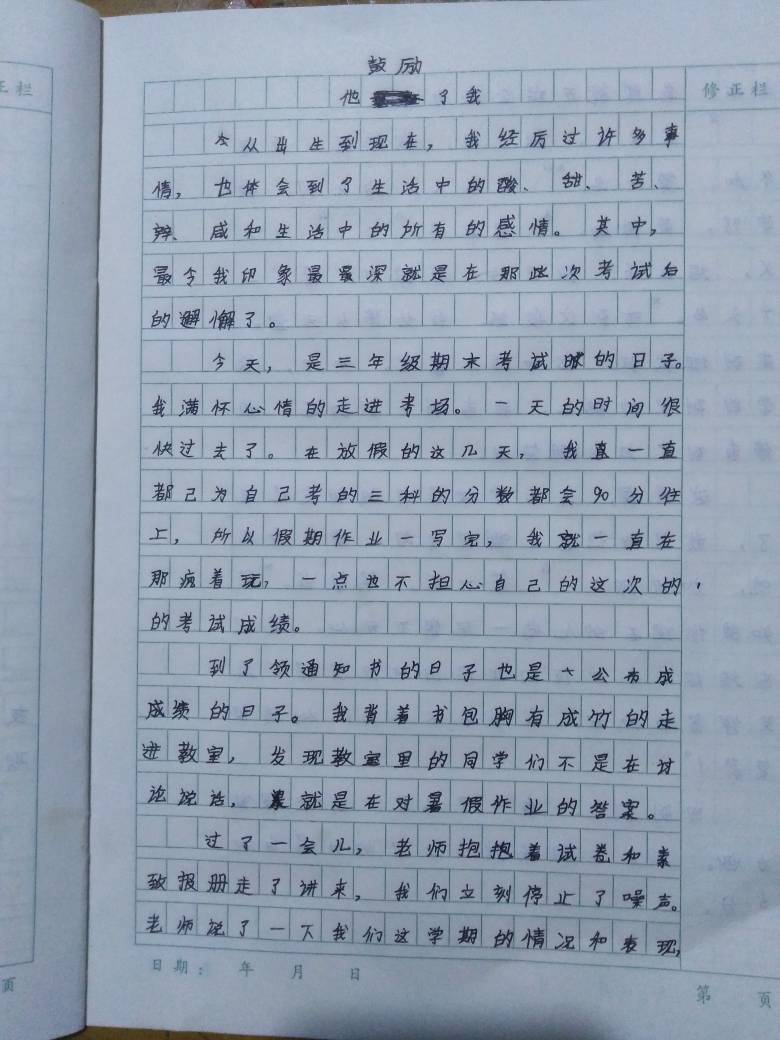 正栏
修正栏
鼓励
他了我
从出生到现在，我经历过许多事
情，也体会到了生活中的酸、甜、苦、
辣、咸和生活中的所有的感情。其中，
最令我印象最最深就是在那些次考试后
的邂懈了。
今天，是三年级期末考试的日子。
我满怀心情的走进考场。一天的时间很
快过去了。在放假的这几天，我直一直
都己为自己考的三科的分数都会90分往
上，所以假期作业一写完，我就一直在
那疯着玩，一点也不担心自己的这次的
的考试成绩。
到了领通知书的日子也是公布成
成绩的日子。我背着书包胸有成竹的走
进教室，发现教室里的同学们不是在讨
论说话，就是在对暑假作业的答案。
过了一会儿，老师抱抱着试卷和素
致报册走了讲来，我们立刻停止了噪声。
老师说了一下我们这学期的情况和表现，
日期： 年 月 日
第 页
页